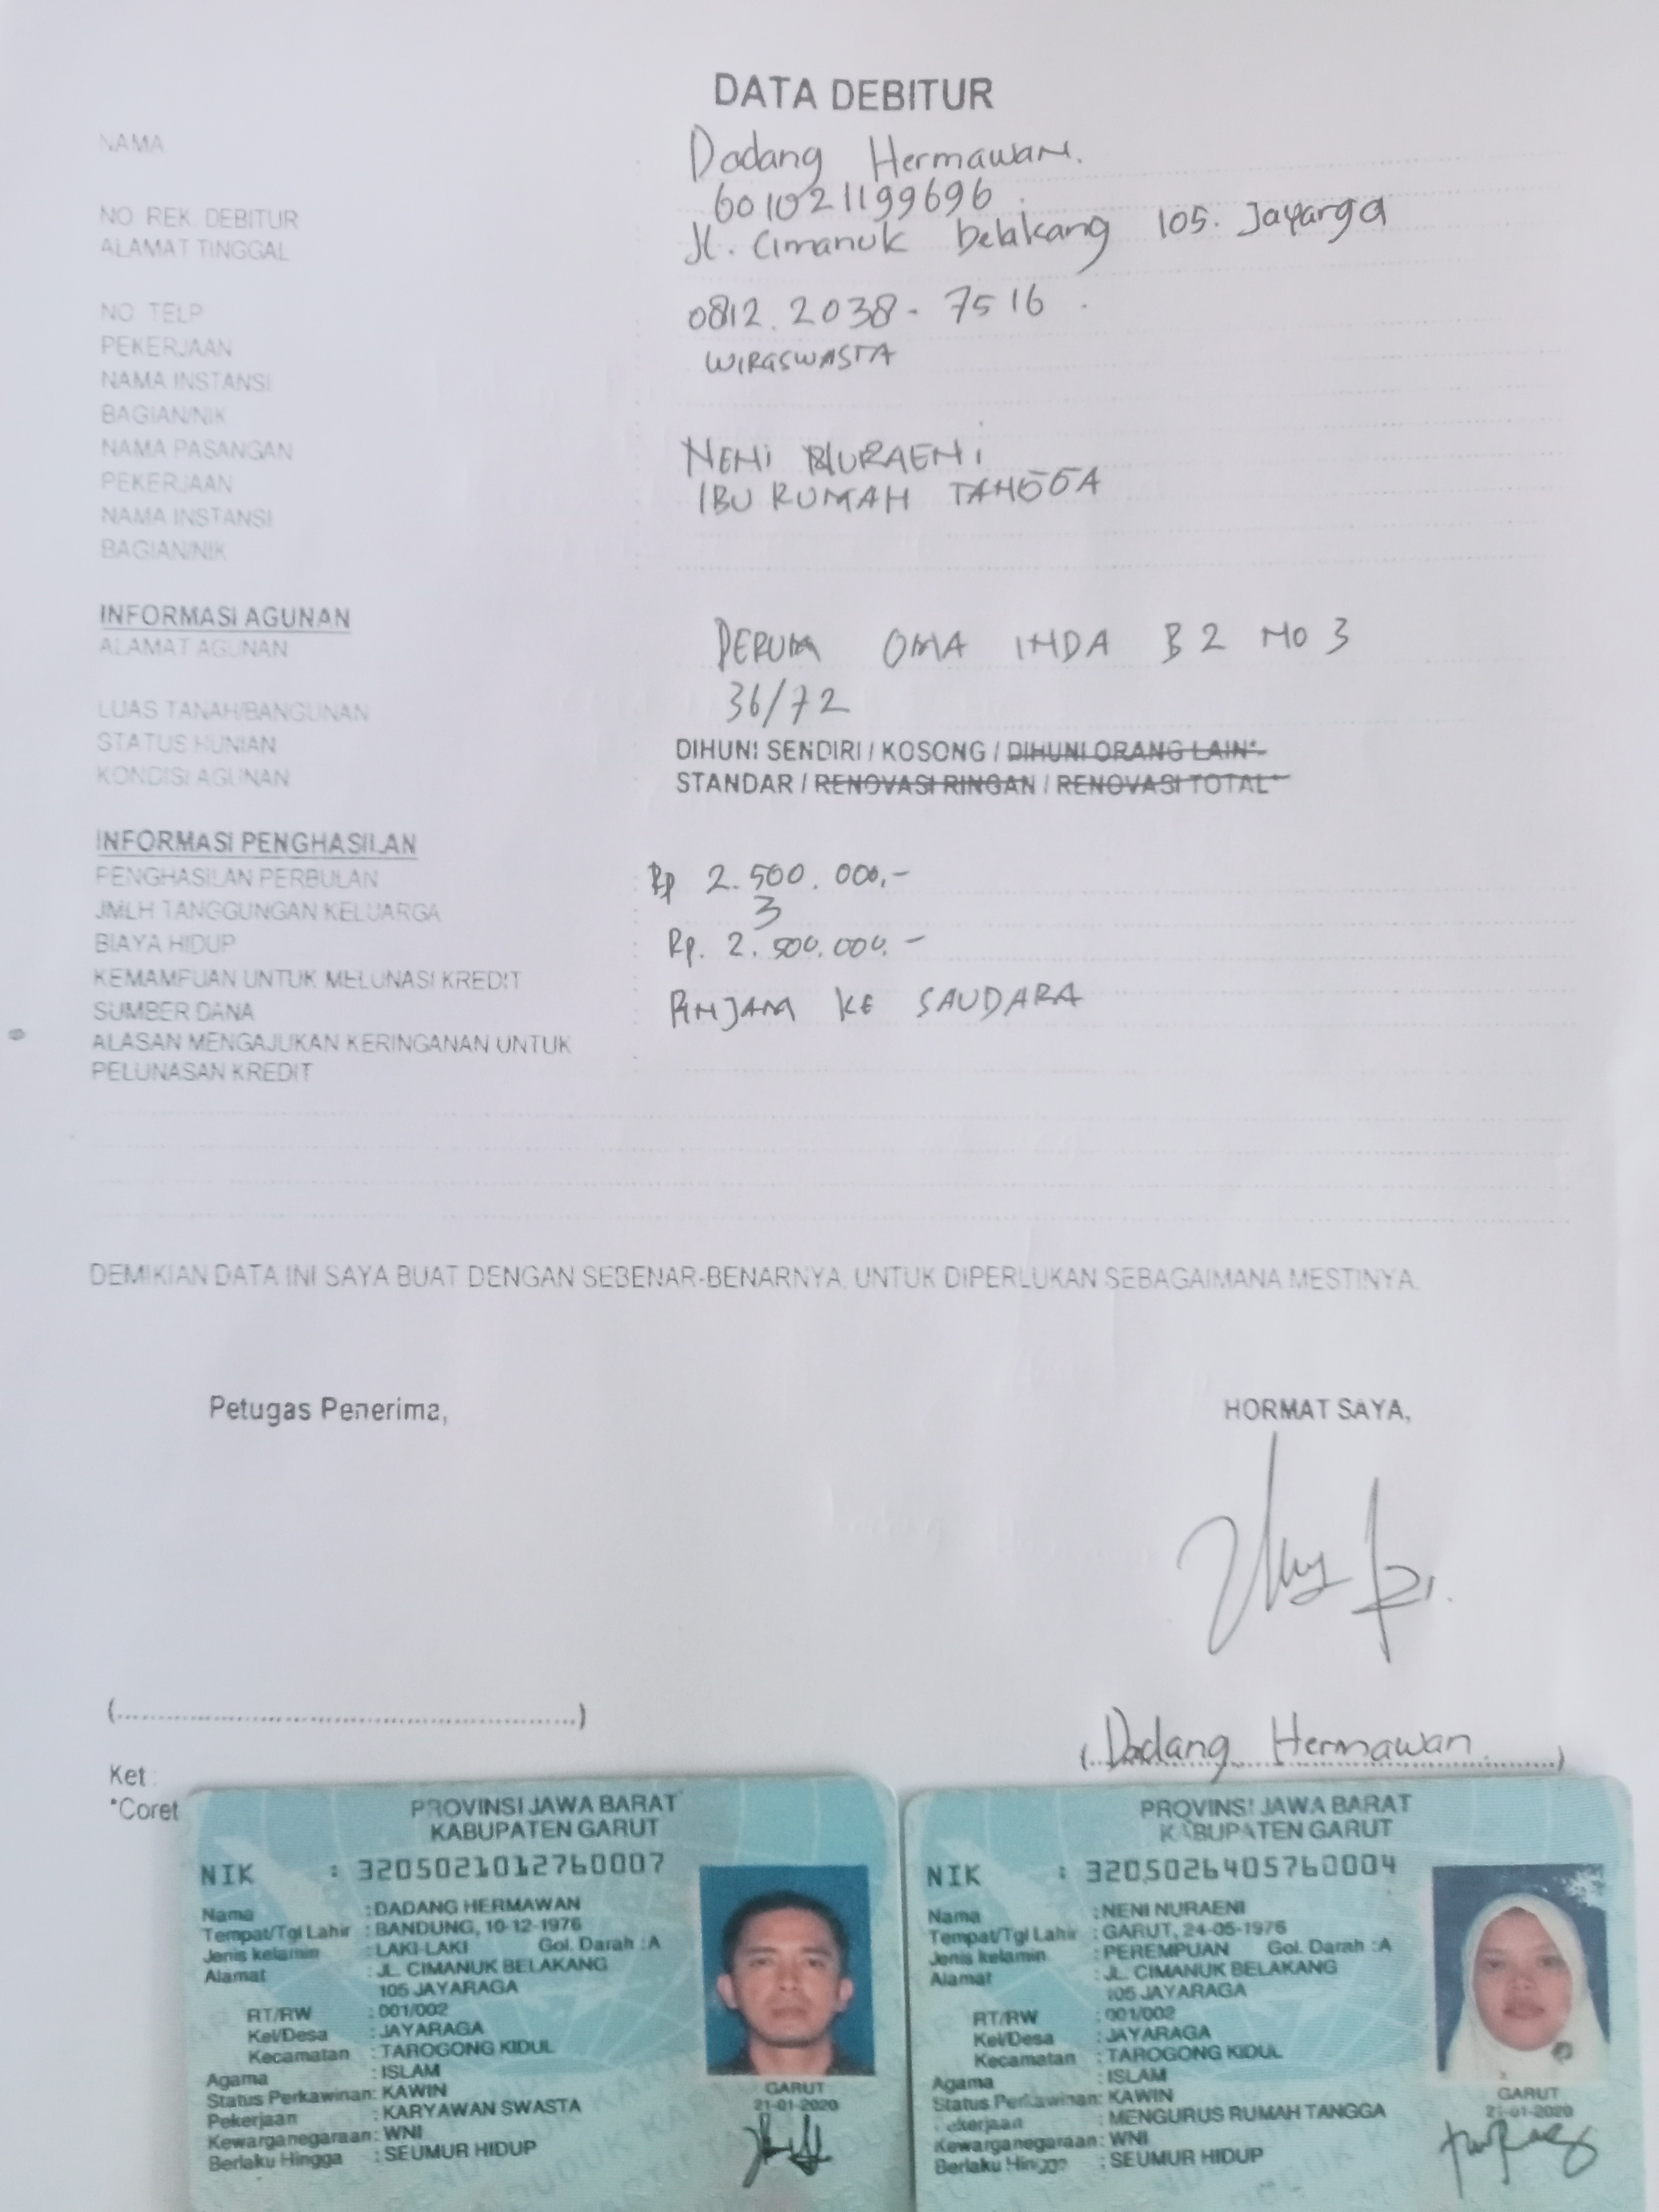 DATA DEBITUR
NAMA : Dadang Hermawan.
NO REK. DEBITUR : 601021199696
ALAMAT TINGGAL : Jl. Cimanuk belakang 105. Jayarga
NO TELP : 0812.2038-7516
PEKERJAAN : WIRASWASTA
NAMA INSTANSI :
BAGIAN/NIK :
NAMA PASANGAN : NENI NURAENI
PEKERJAAN : IBU RUMAH TANGGA
NAMA INSTANSI :
BAGIAN/NIK :
INFORMASI AGUNAN
ALAMAT AGUNAN : PERUM OMA INDA B2 NO 3
LUAS TANAH/BANGUNAN : 36/72
STATUS HUNIAN : DIHUNI SENDIRI / KOSONG / DIHUNI ORANG LAIN*
KONDISI AGUNAN : STANDAR / RENOVASI RINGAN / RENOVASI TOTAL*
INFORMASI PENGHASILAN
PENGHASILAN PERBULAN : Rp 2.500.000,-
JMLH TANGGUNGAN KELUARGA : 3
BIAYA HIDUP : Rp. 2.500.000.-
KEMAMPUAN UNTUK MELUNASI KREDIT :
SUMBER DANA : PINJAM KE SAUDARA
ALASAN MENGAJUKAN KERINGANAN UNTUK :
PELUNASAN KREDIT :
DEMIKIAN DATA INI SAYA BUAT DENGAN SEBENAR-BENARNYA. UNTUK DIPERLUKAN SEBAGAIMANA MESTINYA.
Petugas Penerima, HORMAT SAYA,
(..........) (Dadang Hermawan)
Ket :
*Coret
PROVINSI JAWA BARAT
KABUPATEN GARUT
NIK : 3205021012760007
Nama : DADANG HERMAWAN
Tempat/Tgl Lahir : BANDUNG, 10-12-1976
Jenis kelamin : LAKI-LAKI Gol. Darah :A
Alamat : JL. CIMANUK BELAKANG
105 JAYARAGA
RT/RW : 001/002
Kel/Desa : JAYARAGA
Kecamatan : TAROGONG KIDUL
Agama : ISLAM
Status Perkawinan: KAWIN
Pekerjaan : KARYAWAN SWASTA
Kewarganegaraan: WNI
Berlaku Hingga : SEUMUR HIDUP
GARUT
21-01-2020
PROVINSI JAWA BARAT
KABUPATEN GARUT
NIK : 3205026405760004
Nama : NENI NURAENI
Tempat/Tgl Lahir : GARUT, 24-05-1976
Jenis kelamin : PEREMPUAN Gol. Darah :A
Alamat : JL. CIMANUK BELAKANG
105 JAYARAGA
RT/RW : 001/002
Kel/Desa : JAYARAGA
Kecamatan : TAROGONG KIDUL
Agama : ISLAM
Status Perkawinan: KAWIN
Pekerjaan : MENGURUS RUMAH TANGGA
Kewarganegaraan: WNI
Berlaku Hingga : SEUMUR HIDUP
GARUT
21-01-2020